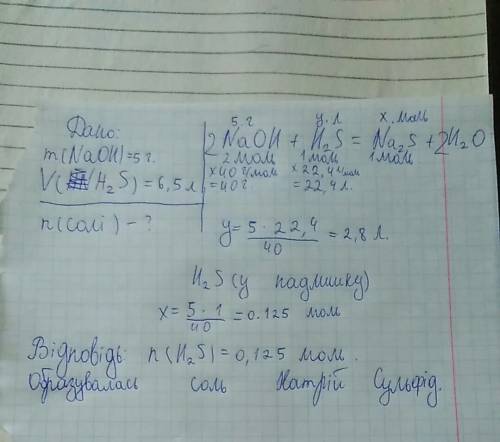 Дано:
m(NaOH)=5г.
V(H₂S)=6,5л
n(солі)-?
5.г y.л x.моль
2NaOH + H₂S = Na₂S + 2H₂O
2моль 1моль 1моль
×40г/моль ×22,4л/моль
=40г =22,4л.
y= 5·22,4/40 = 2,8 л.
H₂S (у надлишку)
x= 5·1/40 = 0.125 моль
Відповідь: n(H₂S)=0,125 моль.
Образувалась соль Натрій Сульфід.